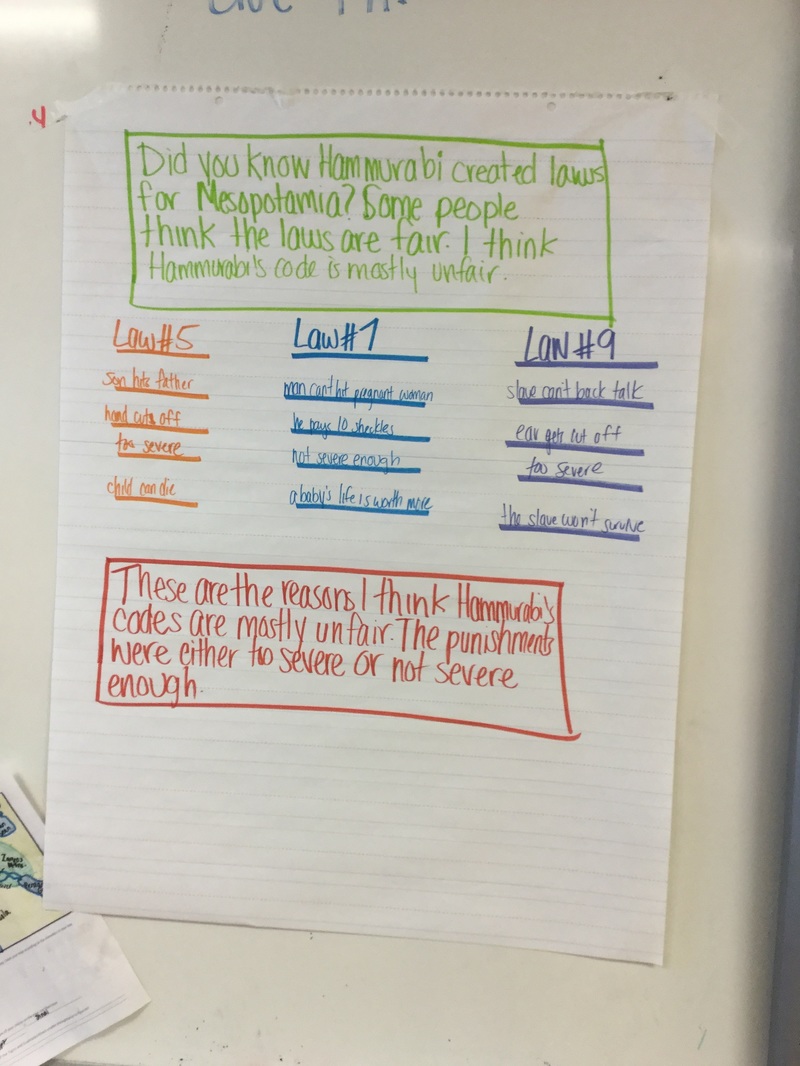 .4
Did you know Hammurabi created laws
for Mesopotamia? Some people
think the laws are fair. I think
Hammurabi's code is mostly unfair.
Law#5
son hits father
hand cuts off
too severe
child can die
Law#1
man can't hit pregnant woman
he pays 10 sheckles
not severe enough
a baby's life is worth more
Law #9
slave can't back talk
ear gets cut off
too severe
the slave won't survive
These are the reasons I think Hammurabi's
codes are mostly unfair. The punishments
were either to severe or not severe
enough.